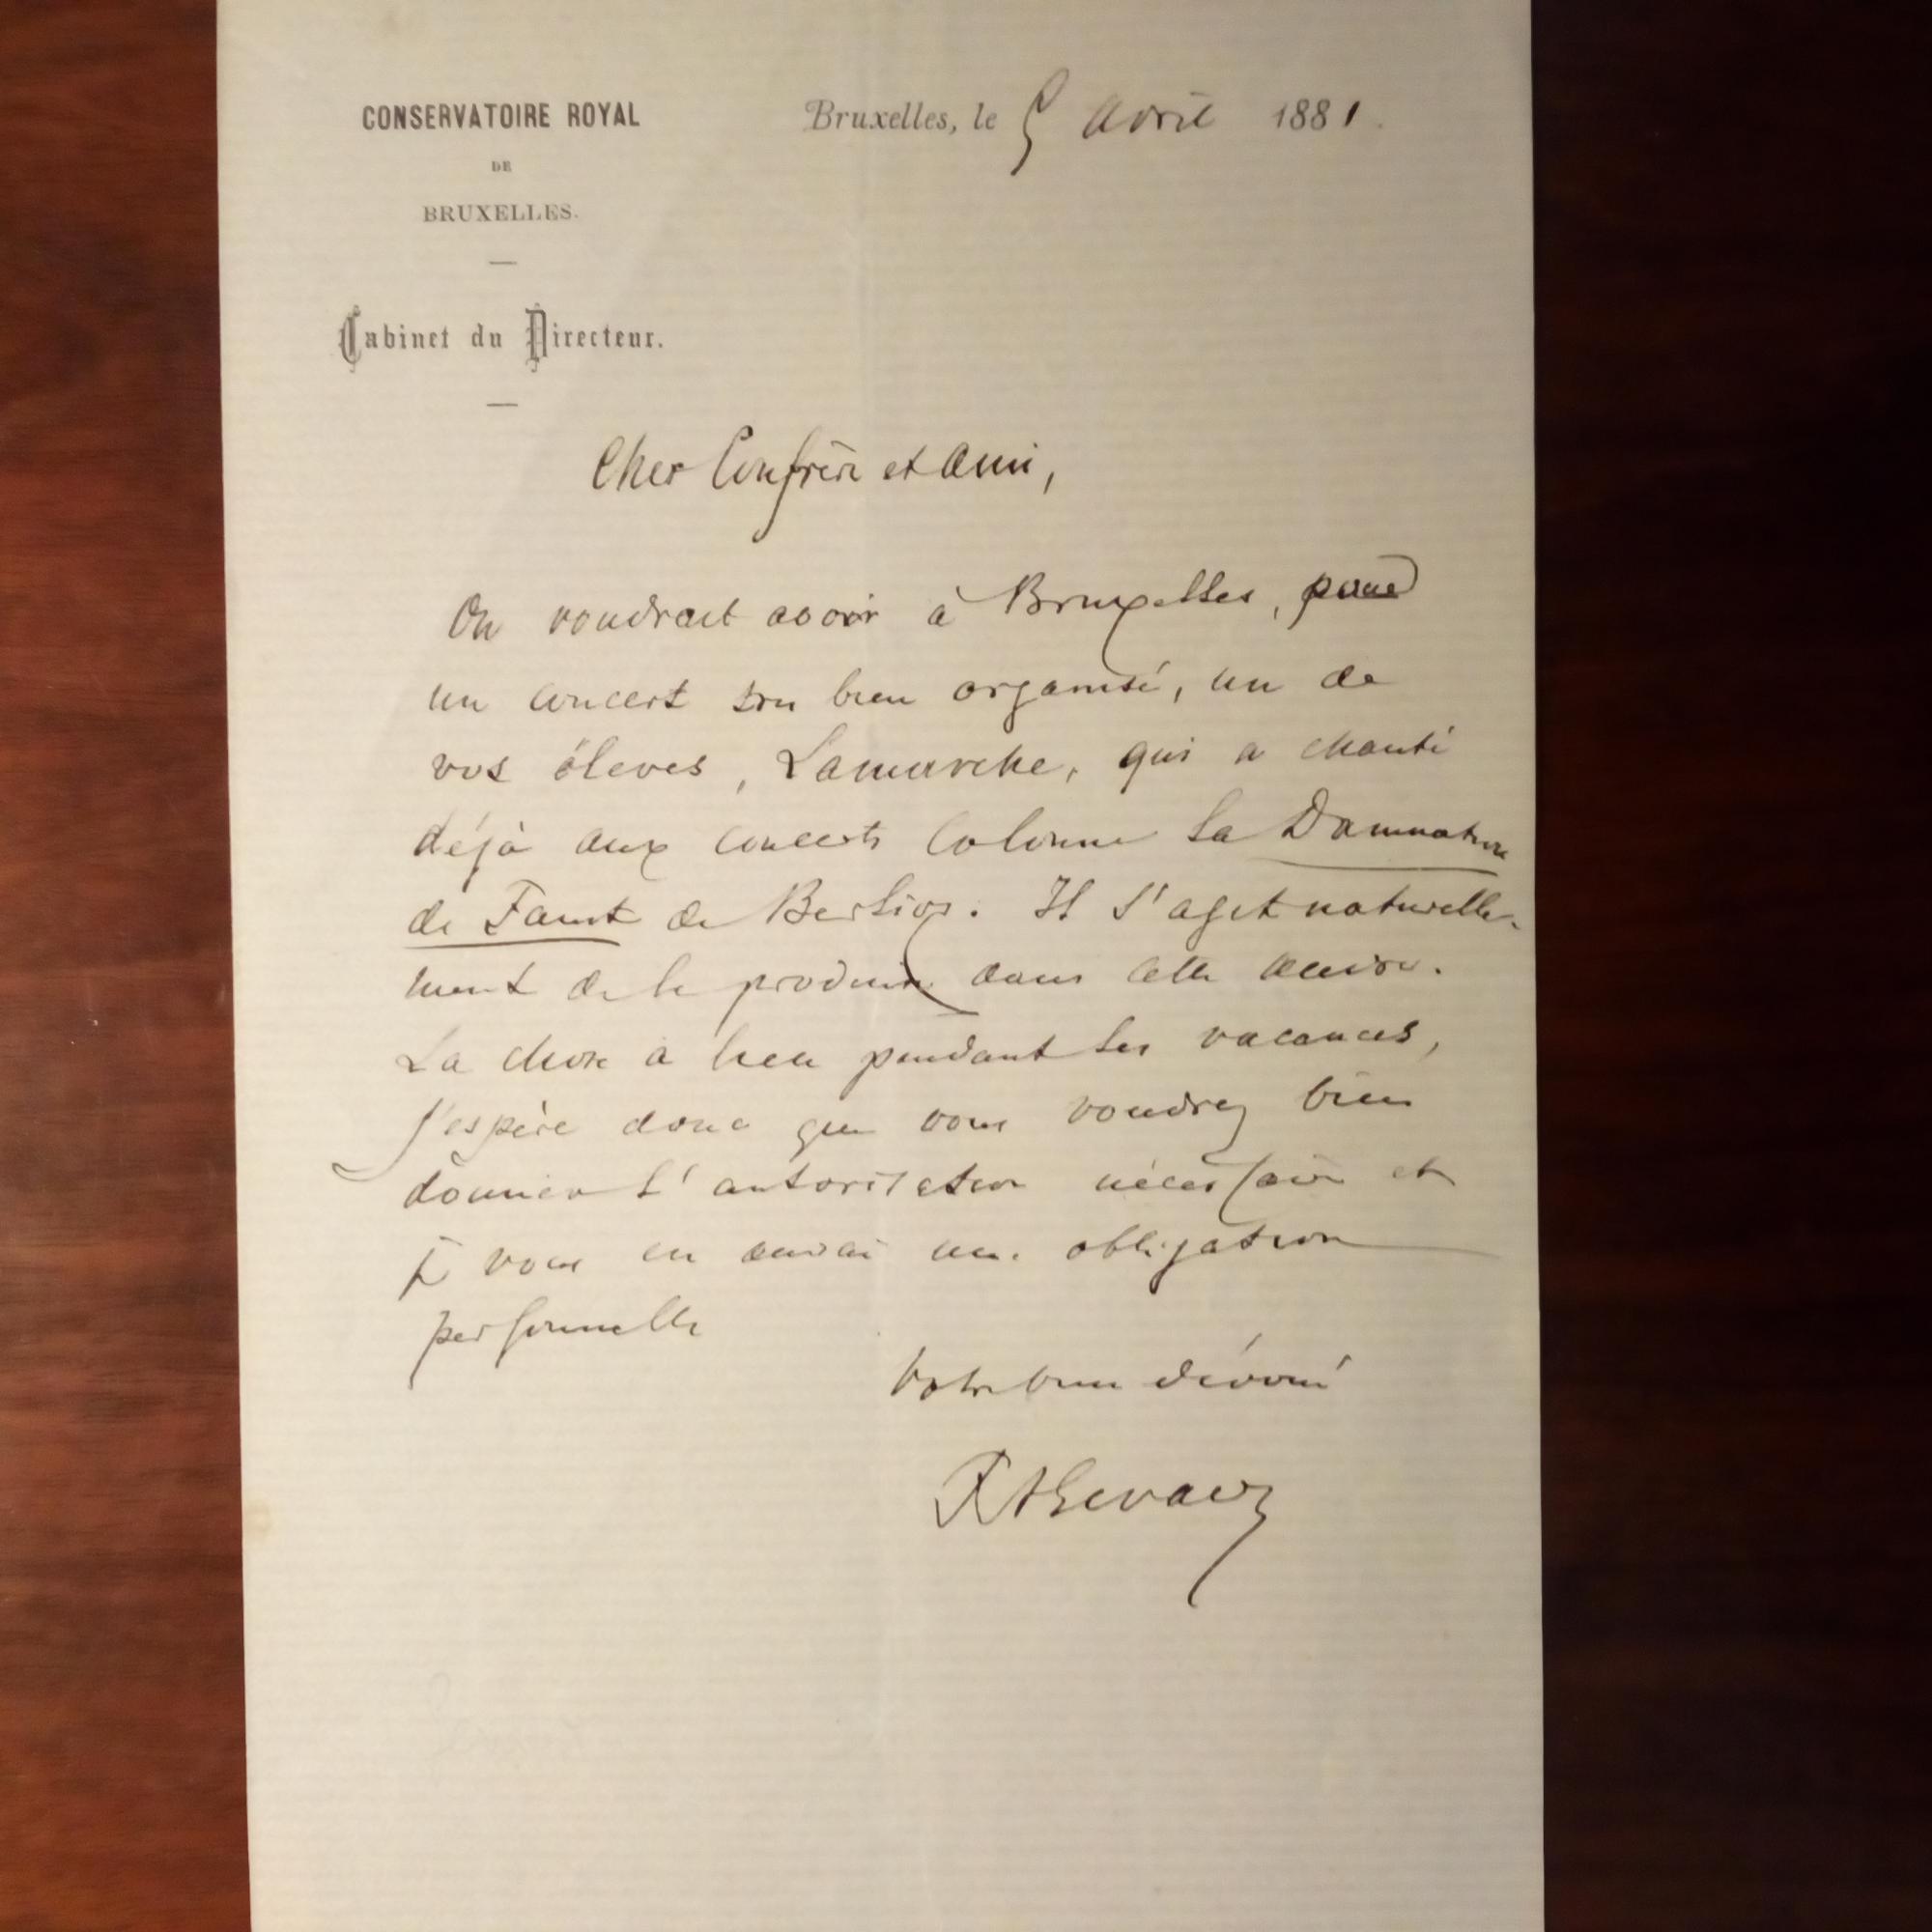 CONSERVATOIRE ROYAL
DE
BRUXELLES.
Bruxelles, le 5 Avril 1881.
Cabinet du Directeur.
Cher Confrère et Ami,
On voudrait avoir à Bruxelles, pour
un concert très bien organisé, un de
vos élèves, Lamarche, qui a chanté
déjà aux concerts Colonne la Damnation
de Faust de Berlioz. Il s'agit naturelle-
ment de le produire dans cette œuvre.
La chose a lieu pendant les vacances,
j'espère donc que vous voudrez bien
donner l'autorisation nécessaire et
je vous en aurai une obligation
personnelle
Votre bien dévoué
FAGevaert